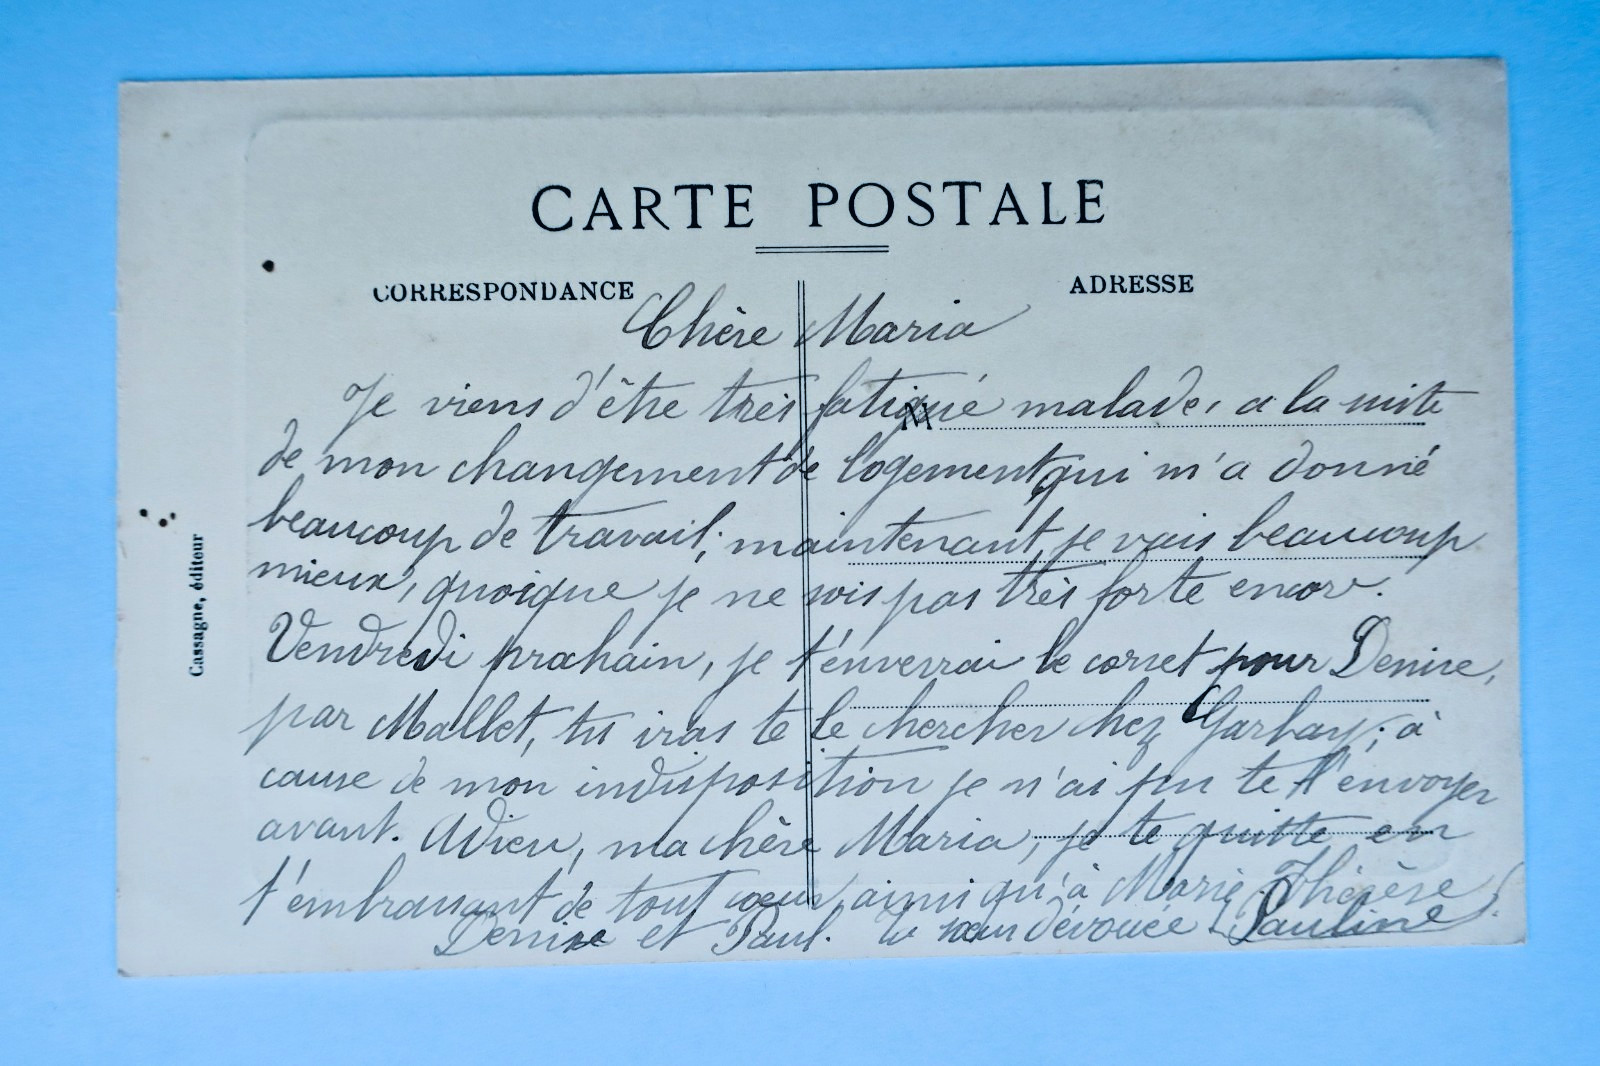 CARTE POSTALE
CORRESPONDANCE
ADRESSE
Chère Maria
Je viens d'être très fatigué malade, a la suite
de mon changement de logement qui m'a donné
beaucoup de travail; maintenant, je vais beaucoup
mieux, quoique je ne sois pas très forte encore.
Vendredi prochain, je t'enverrai le corset pour Denise,
par Mallet, tu iras te le chercher chez Garbay; à
cause de mon indisposition je n'ai pu te l'envoyer
avant. Adieu, ma chère Maria, je te quitte en
t'embrassant de tout cœur ainsi qu'à Marie Thérèse
Denise et Paul. ta sœur dévouée Pauline
Cassagne, éditeur